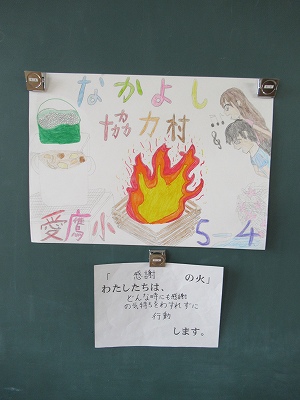 なかよし
協力村
愛鷹小
5-4
「 感謝 の火」
わたしたちは、
どんな時にも感謝
の気持ちをわすれずに
行動
します。